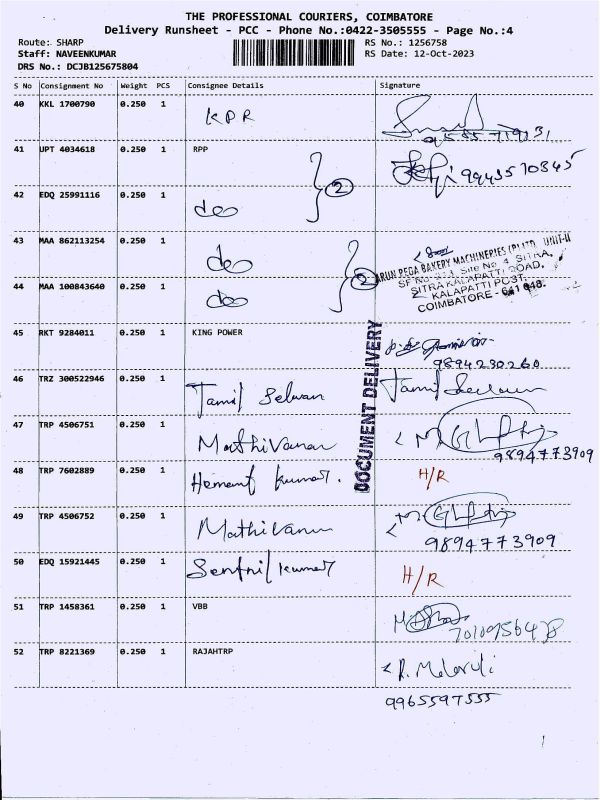 THE PROFESSIONAL COURIERS, COIMBATORE
Delivery Runsheet - PCC - Phone No.:0422-3505555 - Page No.:4
Route: SHARP
RS No.: 1256758
Staff: NAVEENKUMAR
RS Date: 12-Oct-2023
DRS No.: DCJB125675804
S No Consignment No Weight PCS Consignee Details Signature
40 KKL 1700790 0.250 1 KPR
41 UPT 4034618 0.250 1 RPP 9943570345
42 EDQ 25991116 0.250 1 do 2
43 MAA 862113254 0.250 1 do
ARUN REGA BAKERY MACHINERIES (P) LTD, UNIT-II
SITRA KALAPATTI ROAD,
KALAPATTI POST,
COIMBATORE - 641 048.
44 MAA 100843640 0.250 1 do 2
45 RKT 9284011 0.250 1 KING POWER
9894230260
DOCUMENT DELIVERY
46 TRZ 300522946 0.250 1 Tamil Selvan Tamil Selvan
47 TRP 4506751 0.250 1 Mathivanan
9894773909
48 TRP 7602889 0.250 1 Hemant Kumar. H/R
49 TRP 4506752 0.250 1 Mathivanan
9894773909
50 EDQ 15921445 0.250 1 Senthil Kumar H/R
51 TRP 1458361 0.250 1 VBB
52 TRP 8221369 0.250 1 RAJAHTRP
9965597555